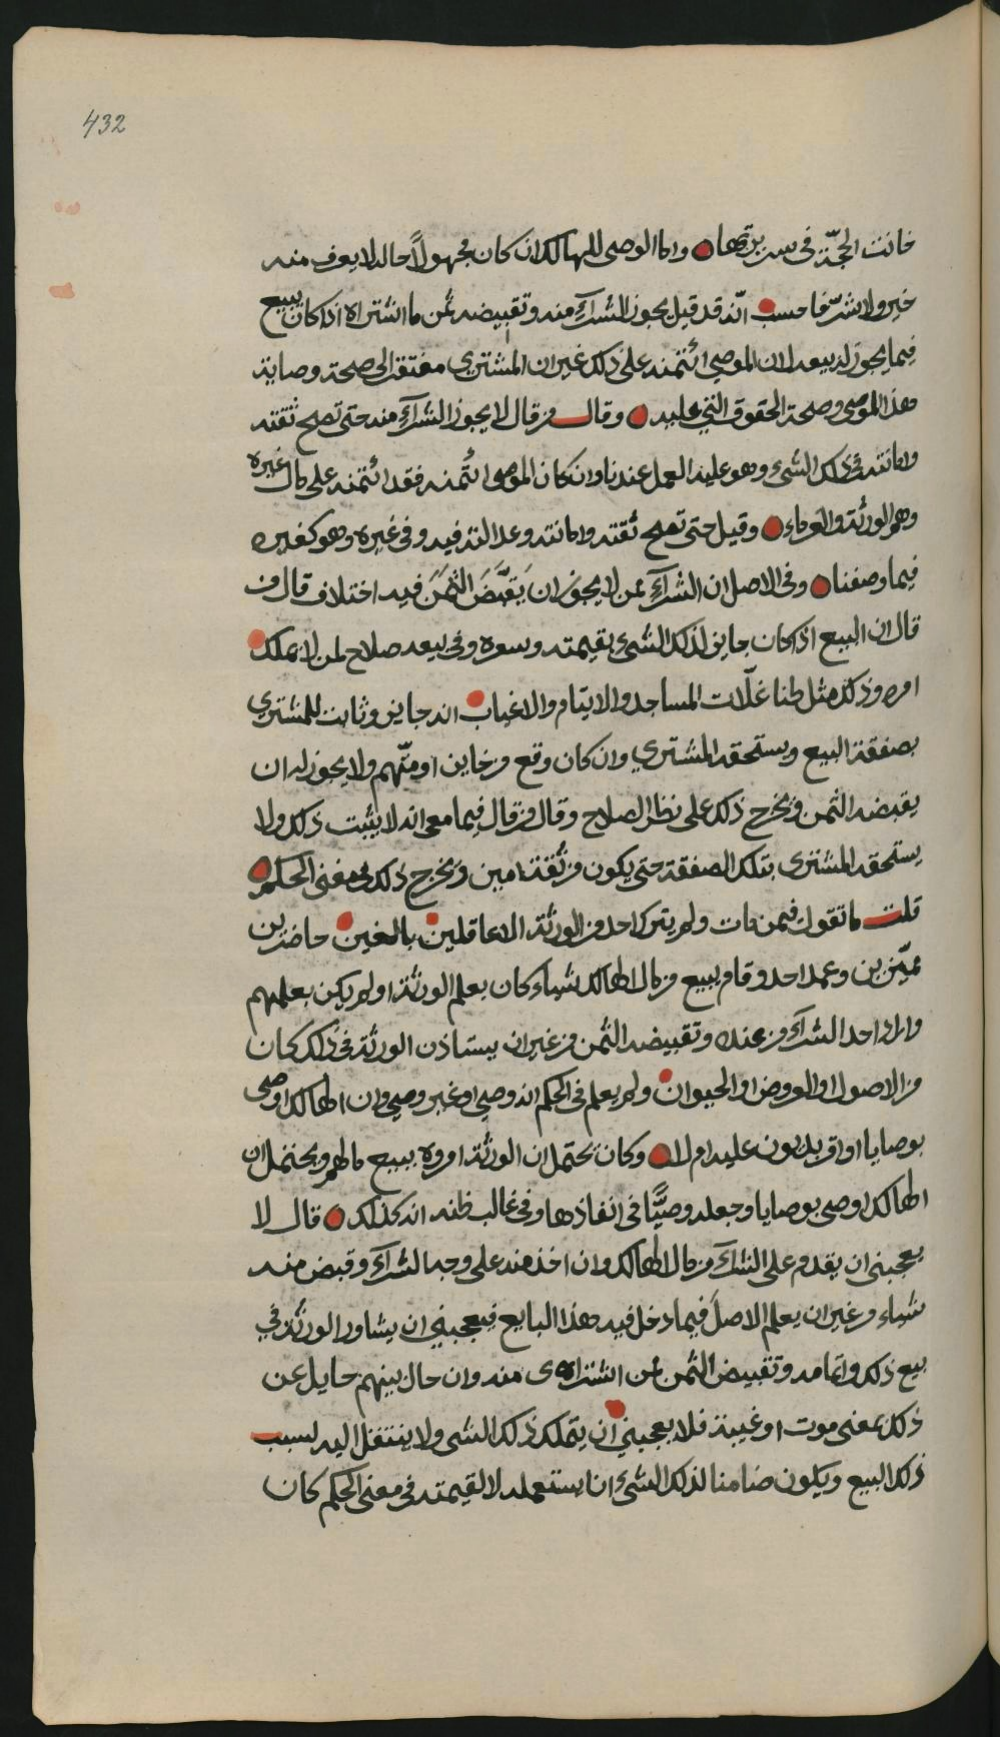 432
خانت الحجّة في سريرتها واما الوصي للهالك ان كان مجهولاً حاله لا يعرف منه
خير ولا شرّ فاحسب انّه قد قيل يجوز الشرآء منه وتقبيضه ثمن ما اشتراه اذا كان يبيع
فيما يجوز له بيعه لان الموصي ائتمنه على ذلك غير ان المشتري مفتقر الى صحة وصاية
هذا الموصي وصحة الحقوق التي عليه وقال من قال لا يجوز الشرآء منه حتى تصح ثقته
وامانته في ذلك الشيء وهو عليه العمل عندنا وان كان الموصي ائتمنه فقد ائتمنه على مال غيره
وهم الورثة والغرماء وقيل حتى تصح ثقته وامانته وعدالته فيه وفي غيره وهو كغيره
فيما وصفنا وفي الاصل ان الشرآء ممن لا يجوز ان يَقبَضَ الثمَنَ فيه اختلاف قال من
قال ان البيع اذا كان جايز لذلك الشيء بقيمته وسعره وفي بيعه صلاح لمن لا يملك
امره وذلك مثل طنا غلّات المساجد والايتام والاغياب انه جايز وثابت للمشتري
بصفقة البيع ويستحقه المشتري وان كان وقع من خاين او متّهم ولا يجوز له ان
يقبضه الثمن ويخرج ذلك على نظر الصلاح وقال من قال فيما معي انه لا يثبت ذلك ولا
يستحقه المشتري بتلك الصفقة حتى يكون من ثقة امين ويخرج ذلك في معنى الحكم
قلت ما تقول فيمن مات ولم يترك احد من الورثة الا عاقلين بالغين حاضرين
مميّزين وعمد احد وقام يبيع من مال الهالك شياء كان بعلم الورثة او لم يكن بعلمهم
واراد احد الشرآء من عنده وتقبيضه الثمن من غير ان يستاذن الورثة في ذلك كان
من الاصول او العروض او الحيوان ولم يعلم في الحكم انه وصي او غير وصي وان الهالك اوصى
بوصايا او اقر بديون عليه ام لا وكان يحتمل ان الورثة امروه ببيع مالهم ويحتمل ان
الهالك اوصى بوصايا وجعله وصيًّا في انفاذها وفي غالب ظنه انه كذلك قال لا
يعجبني ان يقدم على الشرآء من مال الهالك وان اخذ منه على وجه الشرآء وقبض منه
شياء من غير ان يعلم الاصل فيما دخل فيه هذا البايع فيعجبني ان يشاور الورثة في
بيع ذلك واتمامه وتقبيض الثمن لمن اشتراه منه وان حال بينهم حايل عن
ذلك بمعنى موت او غيبة فلا يعجبني ان يتملك ذلك الشي ولا ينتقل اليه لسبب
ذلك البيع ويكون ضامنا لذلك الشيء ان استعمله لا لقيمته في معنى الحكم كان